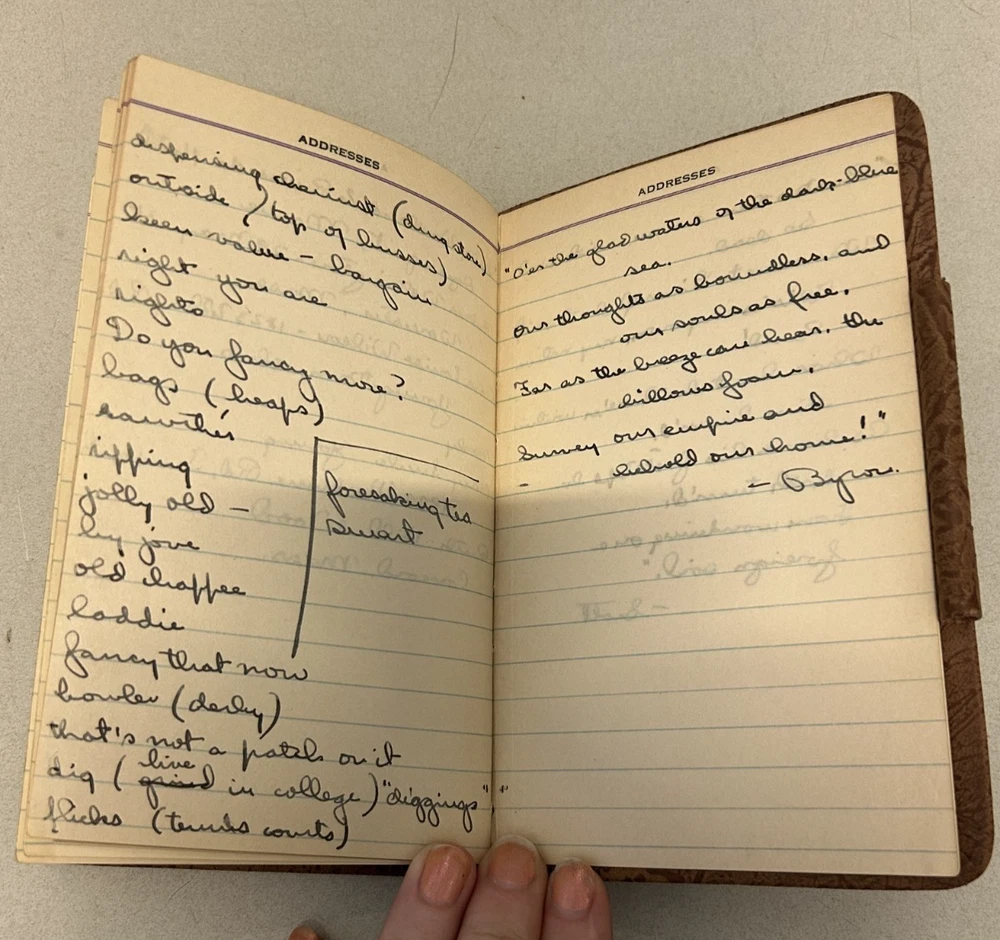 ADDRESSES
dispensing chemist (drug store)
outside / top of busses)
keen value - bargain
right you are
righto
Do you fancy more?
bags (heaps)
rawther
ripping
jolly old -
by jove
old chappee
laddie
fancy that now
bowler (derby)
that's not a patch on it
live
dig ( in college) "diggings"
flicks (tennis courts)
foresaking tea
smart
ADDRESSES
"O'er the glad waters of the dark-blue
sea.
our thoughts as boundless, and
our souls as free,
Far as the breeze can bear, the
billows foam,
Survey our empire and
- behold our home!"
- Byron.